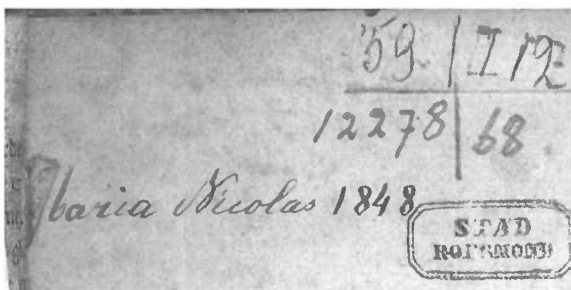 59. I 12
12278 68.
Maria Nicolas 1848
STAD
ROERMOND